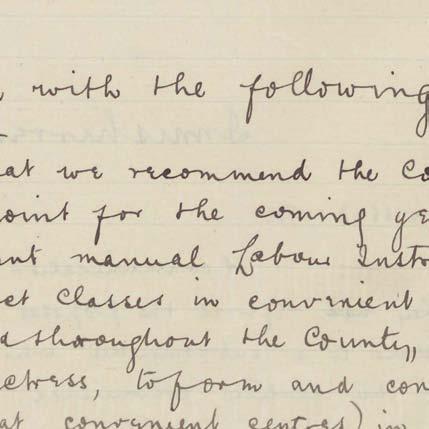 with the following
at we recommend the Co
oint for the coming ye
ant manual Labour Instr
ct Classes in convenient
d throughout the County,,
ctress, to form and con
at convenient centres) in